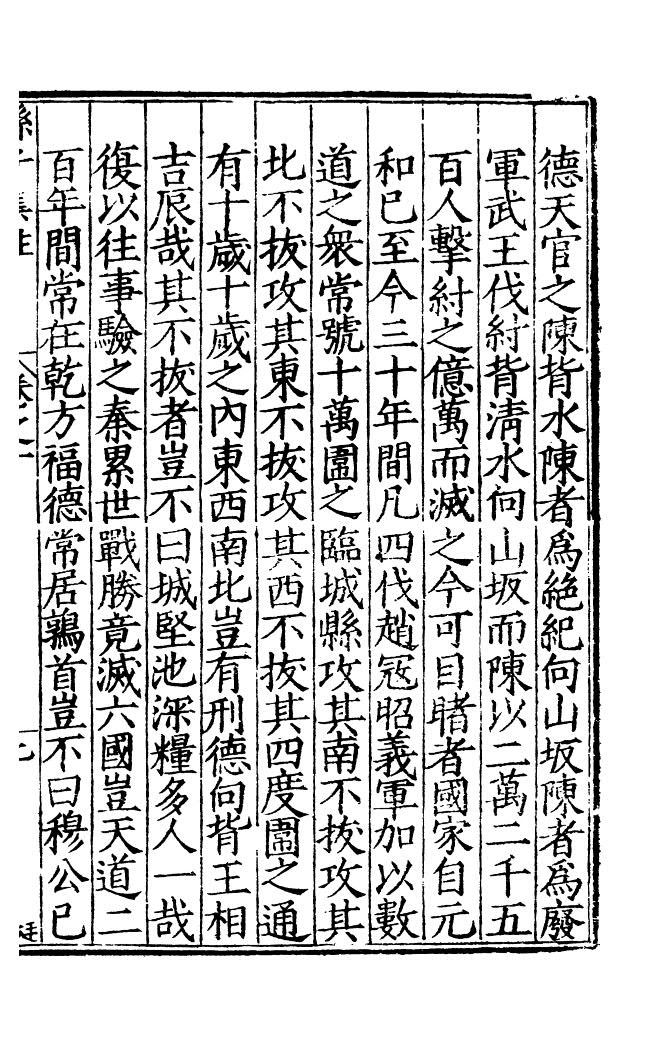 德天官之陳背水陳者爲絶紀向山坂陳者爲廢
軍武王伐紂背淸水向山坂而陳以二萬二千五
百人擊紂之億萬而滅之今可目睹者國家自元
和已至今三十年間凡四伐趙冦昭義軍加以數
道之衆常號十萬圍之臨城縣攻其南不拔攻其
北不拔攻其東不拔攻其西不拔其四度圍之通
有十歲十歲之內東西南北豈有刑德向背王相
吉辰哉其不拔者豈不曰城堅池深糧多人一哉
復以往事驗之秦累世戰勝竟滅六國豈天道二
百年間常在乾方福德常居鶉首豈不曰穆公已